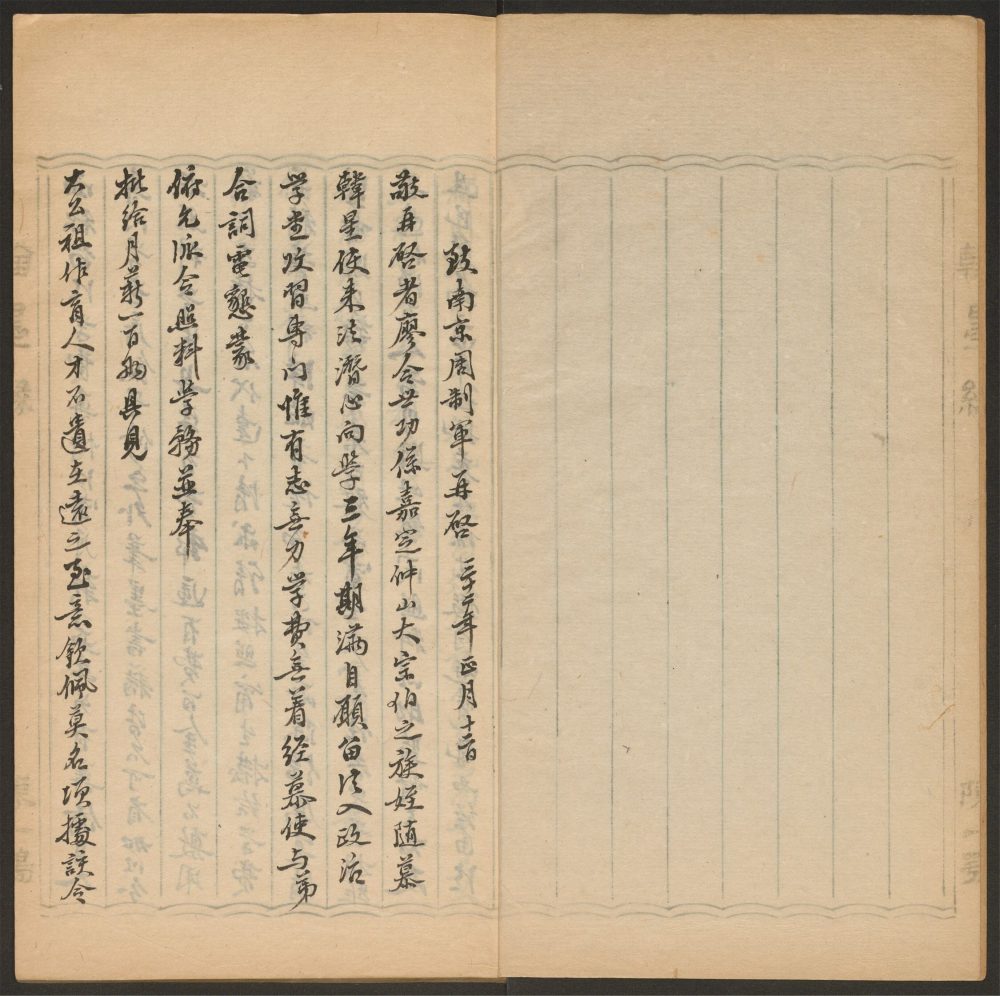 致南京周制軍再啓 三十二年正月十二日
敬再啓者廖令世功係嘉定仲山大宗伯之族姪隨慕
韓星使来法潛心向學三年期滿自願留法入政治
学堂攻習專门惟有志無力学費無着经慕使与弟
合詞電懇蒙
俯允派令照料学務並奉
批给月薪一百両具見
大公祖作育人才不遺在遠之至意欽佩莫名頃據該令